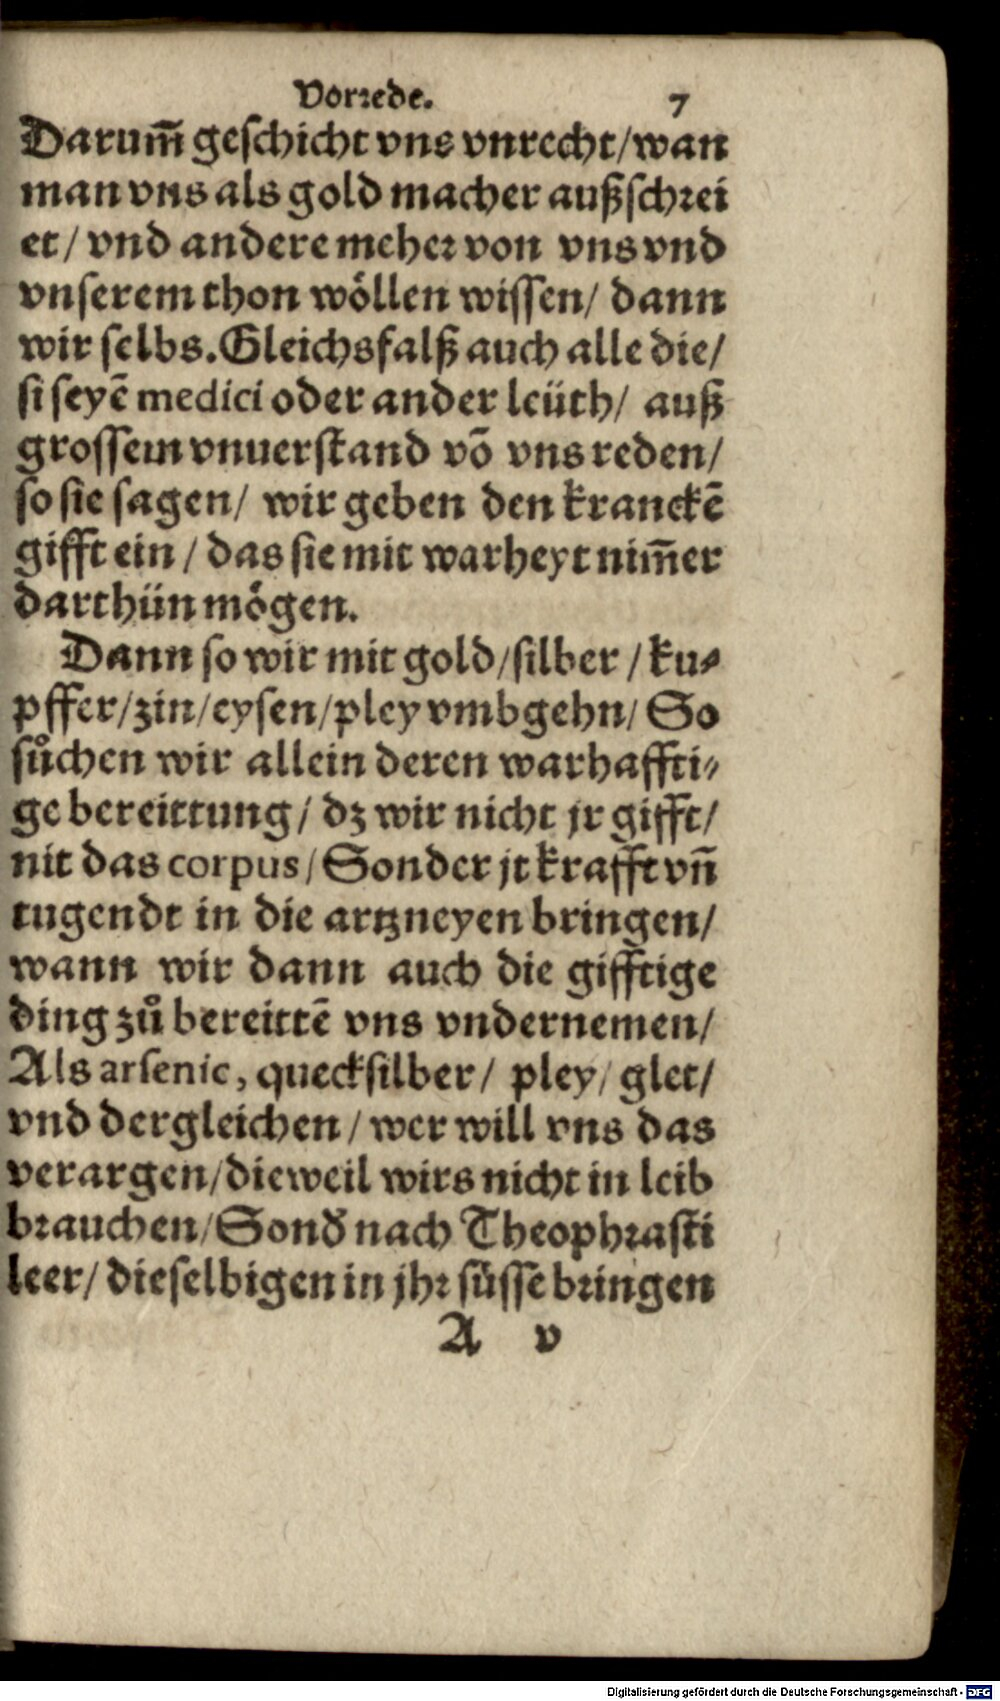 Vorrede. 7
Darum̃ geschicht vns vnrecht/wan
man vns als gold macher außschrei
et/ vnd andere meher von vns vnd
vnserem thon wöllen wissen/ dann
wir selbs. Gleichsfalß auch alle die/
si seyẽ medici oder ander leüth/ auß
grossem vnuerstand võ vns reden/
so sie sagen/ wir geben den kranckẽ
gifft ein/ das sie mit warheyt nim̃er
darthün mögen.
Dann so wir mit gold/silber/ku⸗
pffer/zin/eysen/pley vmbgehn/ So
sůchen wir allein deren warhaffti⸗
ge bereittung/ dz wir nicht jr gifft/
nit das corpus/ Sonder jr krafft vñ
tugendt in die artzneyen bringen/
wann wir dann auch die gifftige
ding zů bereittẽ vns vndernemen/
Als arsenic, quecksilber/ pley/ glet/
vnd dergleichen/ wer will vns das
verargen/dieweil wirs nicht in leib
brauchen/Sond̄ nach Theophrasti
leer/ dieselbigen in jhr süsse bringen
A v
Digitalisierung gefördert durch die Deutsche Forschungsgemeinschaft - DFG